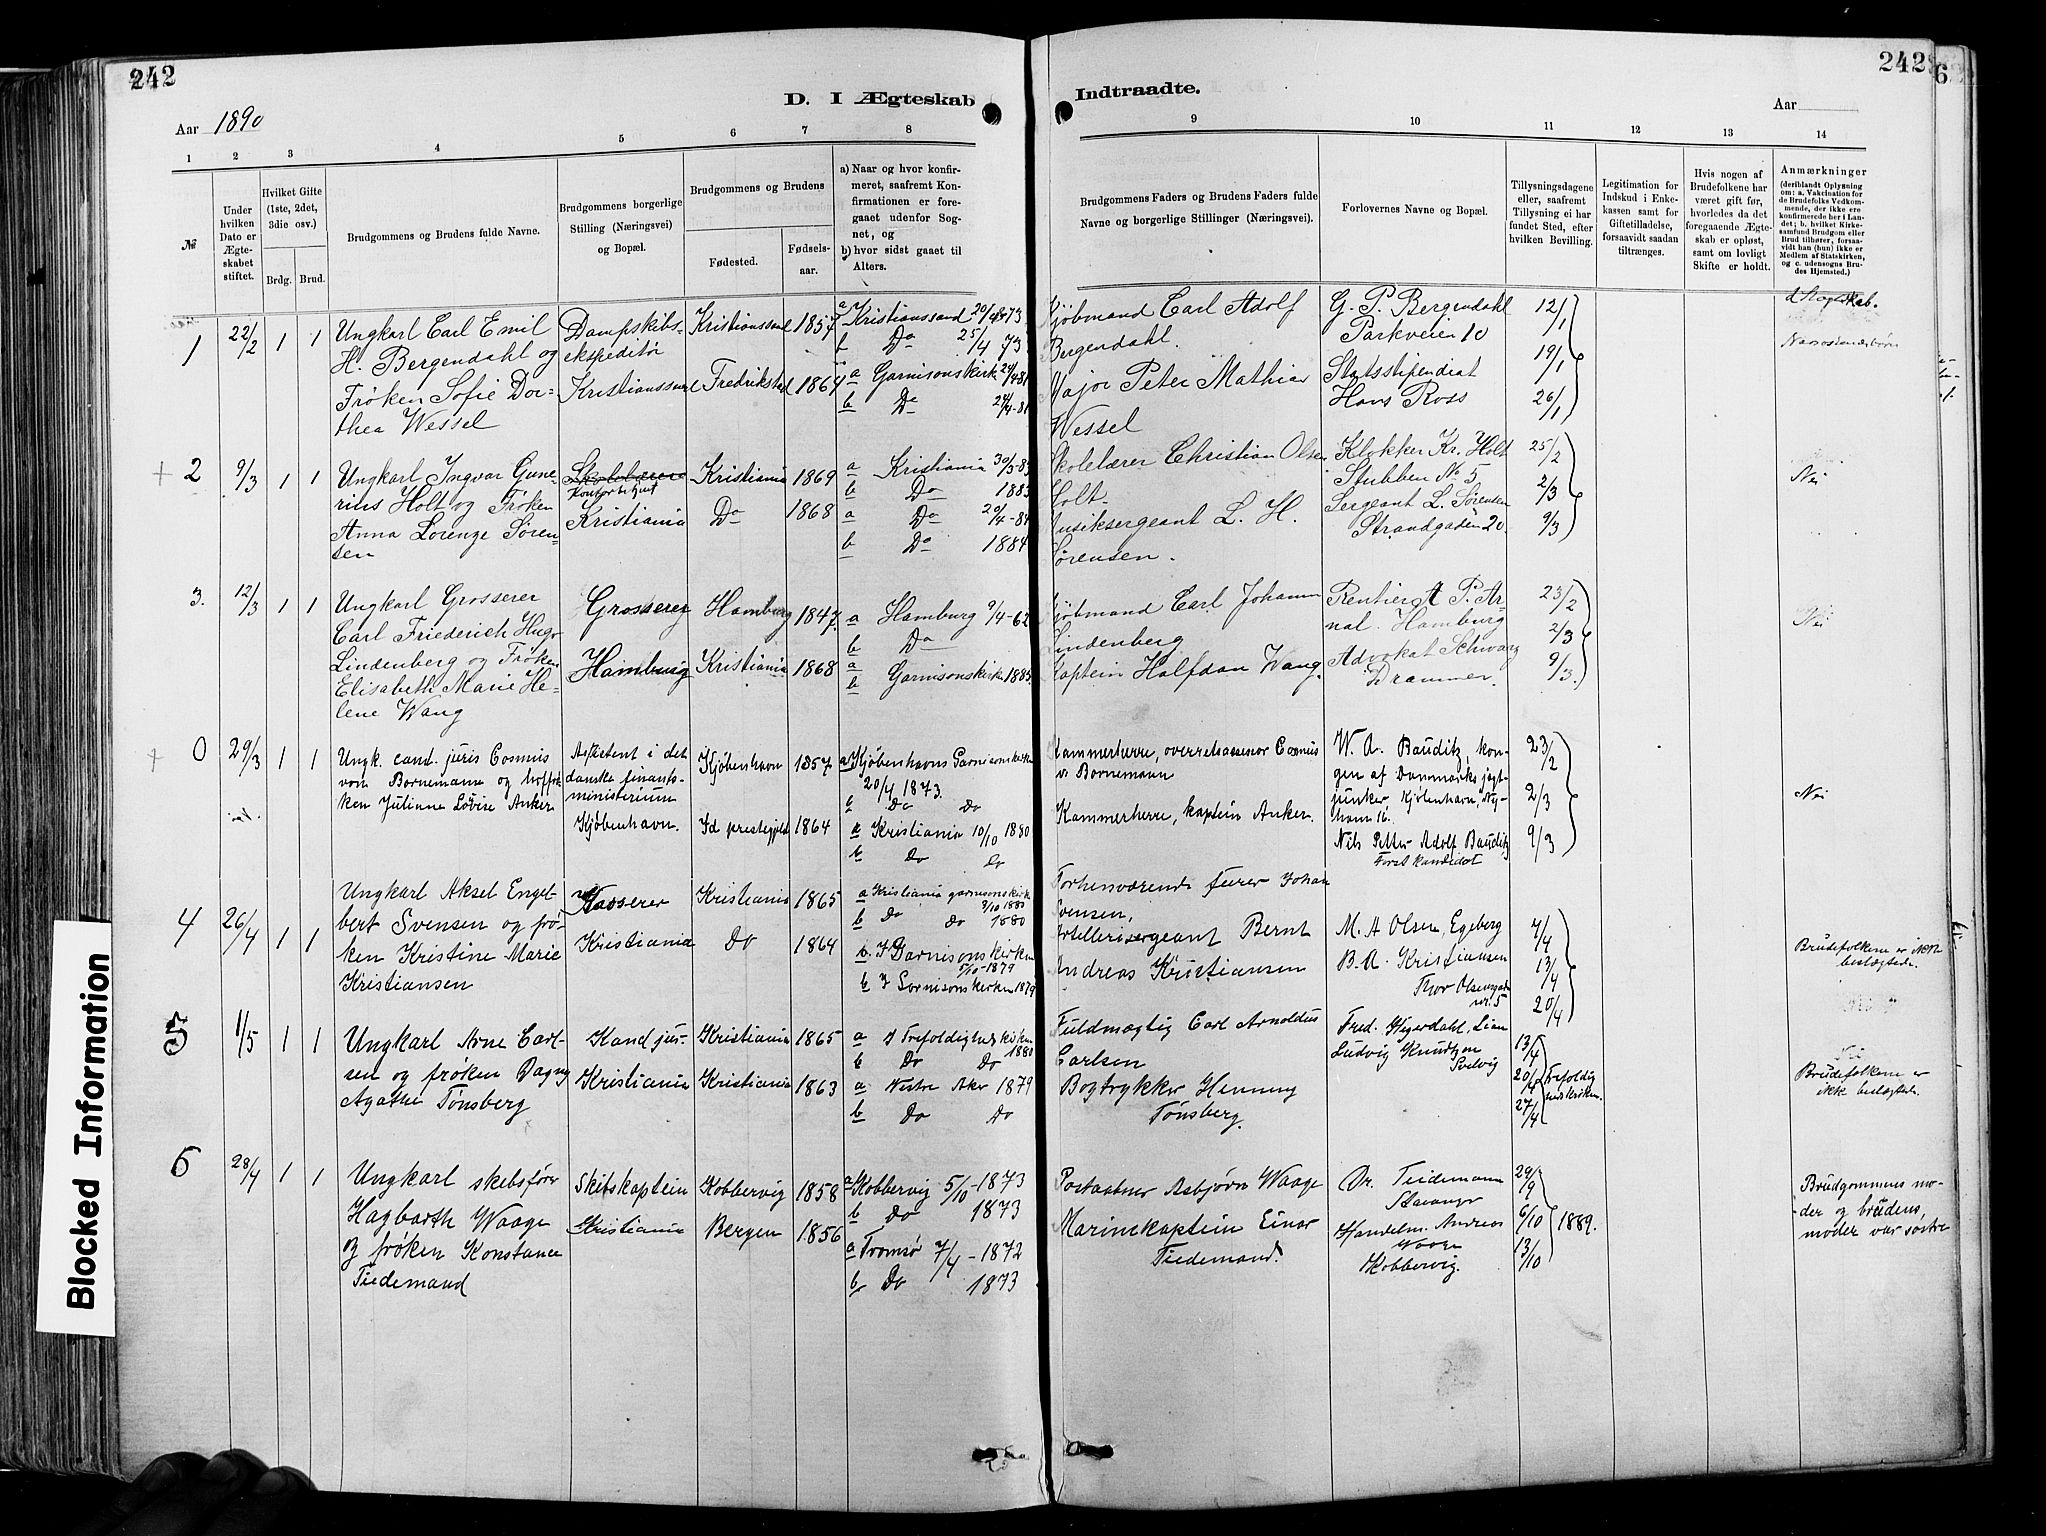 242
D. I Ægteskab
Aar 1890
1 2 3 4 5 6 7 8
№
Under hvilken Dato er Ægteskabet stiftet.
Hvilket Gifte (1ste, 2det, 3die osv.)
Brdg. Brud.
Brudgommens og Brudens fulde Navne.
Brudgommens borgerlige Stilling (Næringsvei) og Bopæl.
Brudgommens og Brudens
Fødested.
Fødselsaar.
a) Naar og hvor konfirmeret, saafremt Konfirmationen er foregaaet udenfor Sognet, og
b) hvor sidst gaaet til Alters.
242
Indtraadte.
Aar
9 10 11 12 13 14
Brudgommens Faders og Brudens Faders fulde Navne og borgerlige Stillinger (Næringsvei).
Forlovernes Navne og Bopæl.
Tillysningsdagene eller, saafremt Tillysning ei har fundet Sted, efter hvilken Bevilling.
Legitimation for Indskud i Enkekassen samt for Giftetilladelse, forsaavidt saadan tiltrænges.
Hvis nogen af Brudefolkene har været gift før, hvorledes da det foregaaende Ægteskab er opløst, samt om lovligt Skifte er holdt.
Anmærkninger
(deriblandt Oplysning om: a. Vakcination for de Brudefolks Vedkommende, der ikke ere konfirmerede her i Landet; b. hvilket Kirkesamfund Brudgom eller Brud tilhører, forsaavidt han (hun) ikke er Medlem af Statskirken, og c. udensogns Brudes Hjemsted.)
1 22/2 1 1
Ungkarl Carl Emil
H. Bergendahl og
Frøken Sofie Dor=
thea Wessel
Dampskibs-
ekspeditør
Kristianssund
Kristianssund 1857
Fredrikstad 1864
a Kristianssand 20/4 1873
b Do 25/4 73
a Garnisonskirk 24/4-81
b Do 24/4-81
Kjøbmand Carl Adolf
Bergendahl.
Major Peter Mathias
Wessel
G. P. Bergendahl
Parkveien 10
Statsstipendiat
Hans Ross
12/1
19/1
26/1
+ 2 9/3 1 1
Ungkarl Ingvar Gune=
rius Holt og Frøken
Anna Lorenze Søren=
sen
Skolelærer
Kontorbetjent
Kristiania
Kristiania 1869
Do 1868
a Kristiania 30/3-83
b Do 1883
a Do 20/4-84
b Do 1884
Skolelærer Christian Olsen
Holt.
Musiksergeant L. H.
Sørensen.
Klokker Kr. Holt
Stubben No 5
Sergeant L. Sørensen
Strandgaden 20.
25/2
2/3
9/3
Nei
3. 12/3 1 1
Ungkarl Grosserer
Carl Friederich Hugo
Lindenberg og Frøken
Elisabeth Marie He=
lene Wang
Grosserer
Hamburg
Hamburg 1847.
Kristiania 1868
a Hamburg 9/4-62
b Do
a
b Garnisonskirken 1885.
Kjøbmand Carl Johann
Lindenberg
Kaptein Halfdan Wang.
Rentier A P. Ar=
nal. Hamburg
Advokat Schwarz
Drammen.
23/2
2/3
9/3.
Nei
+ 0 29/3 1 1
Ungk. cand. juris Cosmus
von Bornemann og hoffrø
ken Julianne Lovise Anker
Assistent i det
danske finants-
ministerium
Kjøbenhavn.
Kjøbenhavn 1857
Id prestegjeld 1864
a Kjøbenhavns Garnisonskirke
20/4 1873.
b Do Do
a Kristiania 10/10 1880
b Do Do
Kammerherre, overretsassessor Cosmus
v. Bornemann
Kammerherre, kaptein Anker.
W. A. Bauditz, kon-
gen af Danmarks jagt-
junker, Kjøbenhavn, Ny-
havn 16.
Nils Petter Adolf Bauditz
Forstkandidat
23/2
2/3
9/3
Nei
4 26/4 1 1
Ungkarl Aksel Engel-
bert Svensen og frø-
ken Kristine Marie
Kristiansen
Kasserer
Kristiania
Kristiania 1865
Do 1864
a Kristiania garnisonskirke
3/10 1880
b Do Do 1880
b. I Garnisonskirken
5/10-1879
b I Garnisonskirken 1879
Forhenværende furer Johan
Svensen,
Artillerisergeant Bernt
Andreas Kristiansen
M. A Olsen, Egeberg
B. A. Kristiansen
Thor Olsensgade
nr. 5
7/4
13/4
20/4
Brudefolkene er ikke
beslægtede.
5 1/5 1 1
Ungkarl Arne Carl-
sen og frøken Dagny
Agathe Tønsberg
Kand jur-
Kristiania
Kristiania 1865
Kristiania 1863
a I Trefoldighedskirken
1880
b Do Do
a Vestre Aker 1879
b Do Do
Fuldmægtig Carl Arnoldus
Carlsen
Bogtrykker Henning
Tønsberg.
Fred. Hegerdahl, Lian
Ludvig Knudtzen
Svelvig
13/4
20/4
27/4
Trefoldig
hedskirken.
Brudefolkene er
ikke beslægtede.
6 28/4 1 1
Ungkarl skibsfører
Hagbarth Waage
og frøken Konstance
Tiedemand
Skibskaptein
Kristiania
Kobbervig 1858
Bergen 1856
a Kobbervig 5/10-1873
b Do 1873
a Tromsø 7/4-1872
b Do 1873
Postaabner Asbjørn Waage
Marinekaptein Einar
Tiedemand.
Dr. Tiedemann
Stavanger
Handelsm. Andreas
Waage
Kobbervig.
29/9
6/10
13/10
1889.
Brudgommens mo-
der og brudens
moder var søstre
Blocked Information